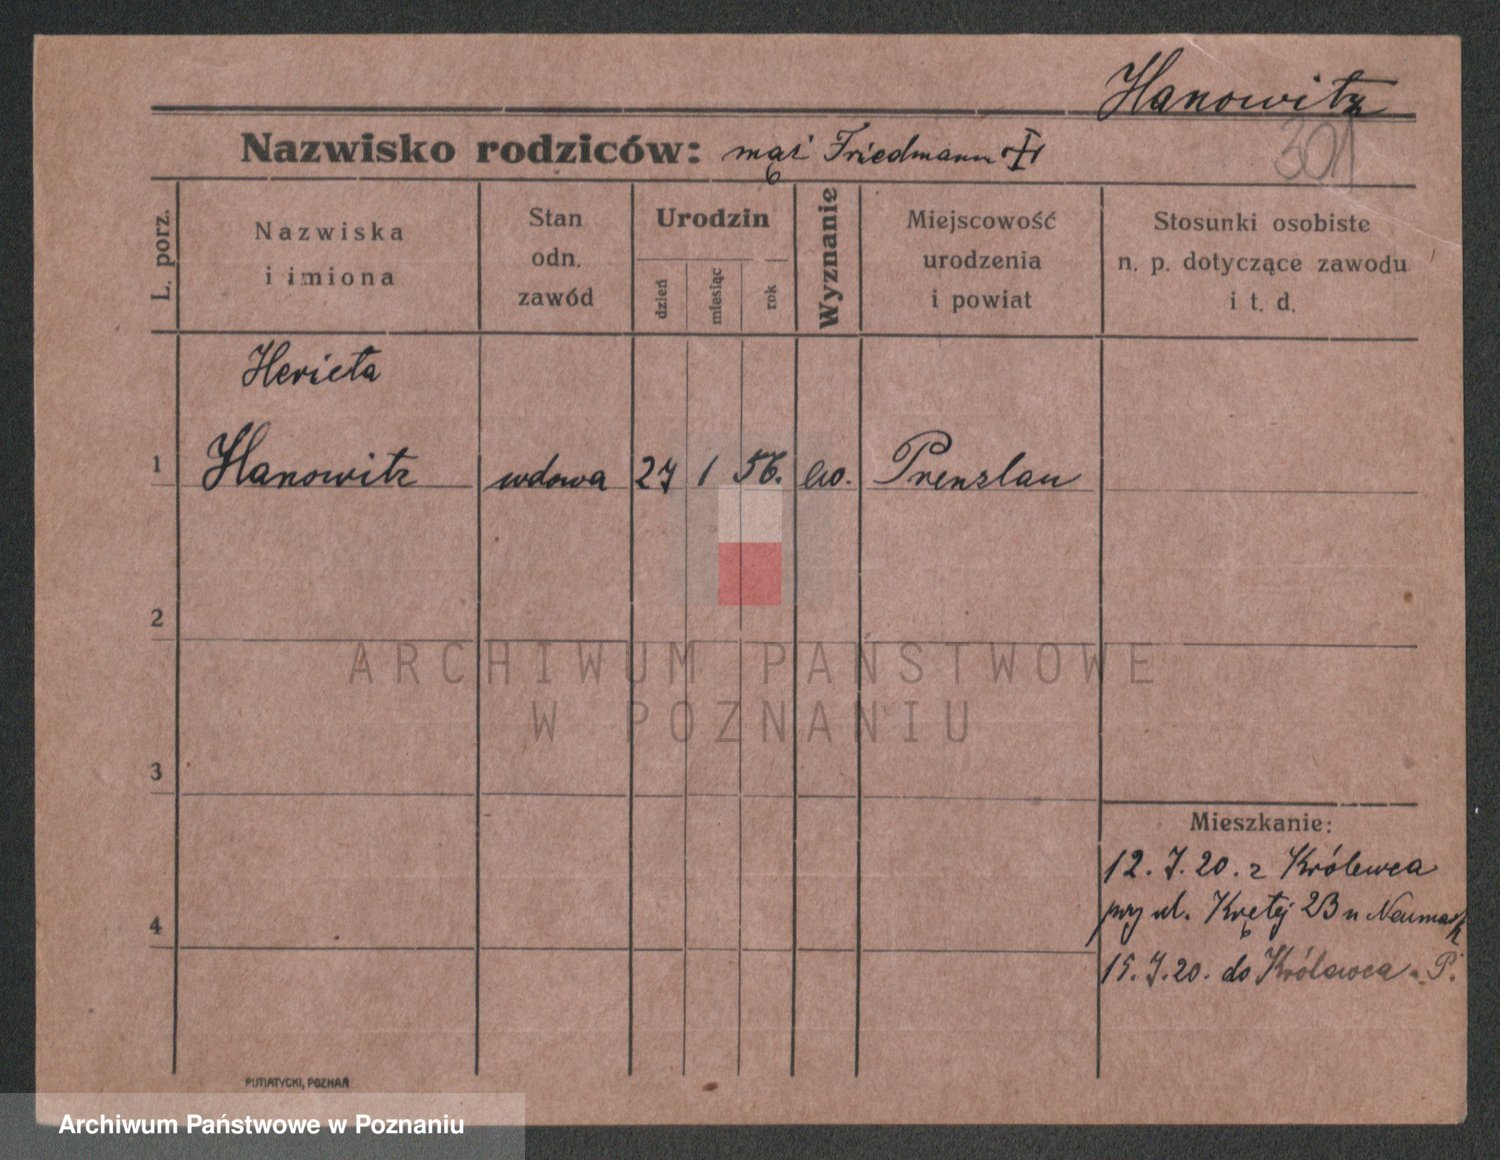 Hanowitz
301
Nazwisko rodziców: mąż Friedmann
L. porz.
Nazwiska i imiona
Stan odn. zawód
Urodzin
dzień
miesiąc
rok
Wyznanie
Miejscowość urodzenia i powiat
Stosunki osobiste n. p. dotyczące zawodu i t. d.
Herieta
1 Hanowitz wdowa 27 1 56. Prenzlau
2
ARCHIWUM PAŃSTWOWE
W POZNANIU
3
Mieszkanie:
12. 7. 20. z Królewca
przy ul. Krętej 2B u Neumark
4
15. 7. 20. do Królewca P.
PUTIATYCKI, POZNAŃ
Archiwum Państwowe w Poznaniu